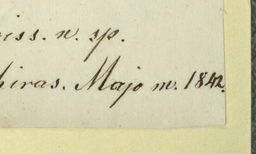 iss. n. sp.
hiras. Majo m. 1842.